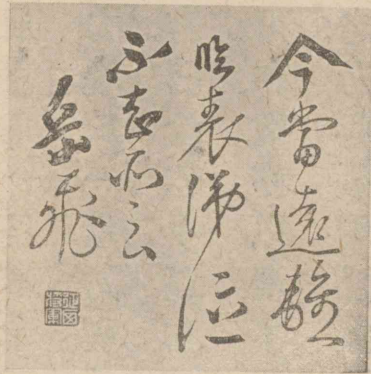 今當遠離
臨表涕泣
不知所云
岳飛